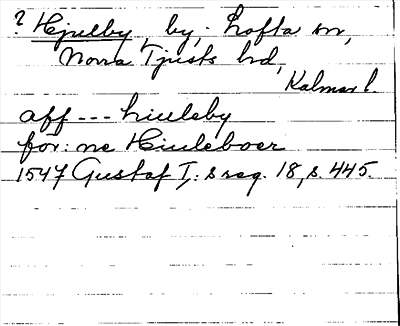 ? Hjulby, by, Lofta sn,
Norra Tjusts hd,
Kalmar l.
aff --- hiuleby
for: ne Hiuleboer
1547 Gustaf I:s reg. 18, s. 445.